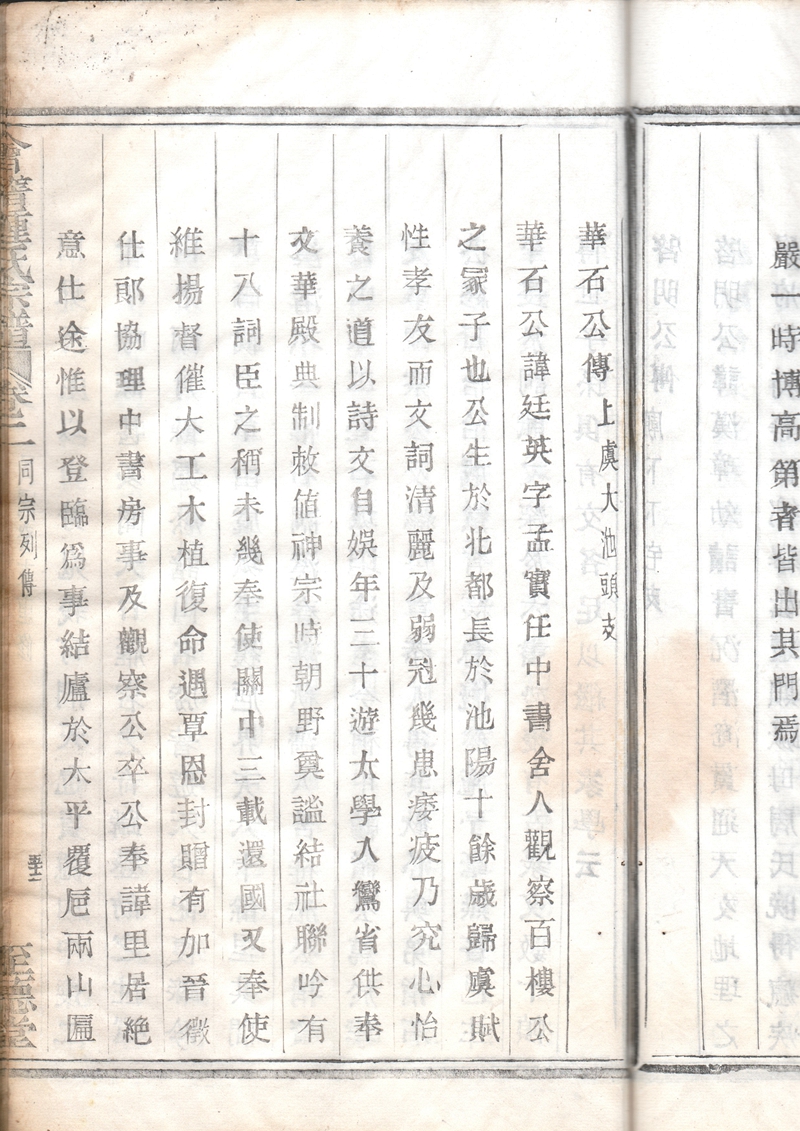 嚴一時博高第者皆出其門焉
華石公傳上虞大池頭支
華石公諱廷英字孟實任中書舍人觀察百樓公
之冡子也公生於北都長於池陽十餘歲歸虞賦
性孝友而文詞清麗及弱冠幾患痿疲乃究心怡
養之道以詩文自娛年二十遊太學入鸞省供奉
文華殿典制敕值神宗時朝野奠謐結社聯吟有
十八詞臣之稱未幾奉使關中三載還國又奉使
維揚督催大工木植復命遇覃恩封贈有加晉徵
仕郎協理中書房事及觀察公卒公奉諱里居絶
意仕途惟以登臨爲事結廬於太平覆卮兩山匾
會稽鍾氏宗譜 卷之二 同宗列傳 至德堂